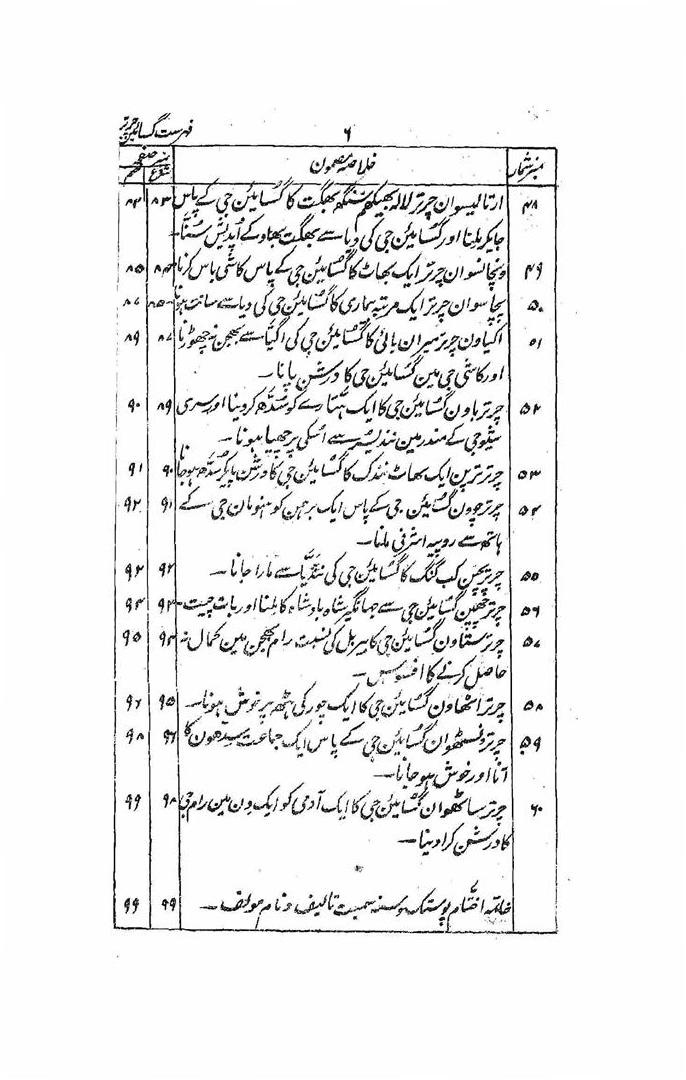 ۶
فہرست گسائین چرتر
نمبر شمار خلاصہ مضمون نمبر صفحہ شروع ختم
۴۸ ارتالیسوان چرتر لالہ بھیکھم سنگھ بھگت کا گسایئن جی کے پاس ۸۳ ۸۴
جا کر ملنا اور گسایئن جی کی دیا سے بھگت بھاو کے اُپدیش سُننا۔
۴۹ ونچانسوان چرتر ایک بھاٹ کا گسایئن جی کے پاس کاشی باس کرنا ۸۴ ۸۵
۵۰ پچاسوان چرتر ایک مرتبہ بیماری کا گسایئن جی کی دیا سے سانت ہونا ۸۵ ۸۷
۵۱ اکیاون چرتر میران بائی کا گسایئن جی کی اگیا سے بھجن نہ چھوڑنا ۸۷ ۸۹
اور کاشی جی مین گسایئن جی کا درشن پانا۔
۵۲ چرتر باون گسایئن جی کا ایک ہتیارے کو شدھ کر دینا اور سری ۸۹ ۹۰
شیوجی کے مندر مین نندیشر سے اسکی پرچھیا ہونا۔
۵۳ چرتر ترپن ایک بھاٹ نندک کا گسایئن جی کا درشن پا کر شدھ ہو جانا ۹۰ ۹۱
۵۴ چرتر چوون گسایئن جی کے پاس ایک برہمن کو ہنومان جی کے ۹۱ ۹۲
ہاتھ سے روپیہ اشرفی ملنا۔
۵۵ چرتر پچپن کب گنگ کا گسایئن جی کی نندیا سے مارا جانا۔ ۹۲ ۹۲
۵۶ چرتر چھپن گسایئن جی سے جہانگیر شاہ بادشاہ کا ملنا اور بات چیت۔ ۹۳ ۹۴
۵۷ چرتر ستاون گسایئن جی کا بیربل کی نسبت رام بھجن مین کمال نہ ۹۴ ۹۵
حاصل کرنے کا افسوس۔
۵۸ چرتر اٹھاون گسایئن جی کا ایک چور کی ہٹھ پر خوش ہونا۔ ۹۵ ۹۶
۵۹ چرتر ونسٹھوان گسایئن جی کے پاس ایک جماعت سدھون کا ۹۶ ۹۸
آنا اور خوش ہو جانا۔
۶۰ چرتر ساٹھوان گسایئن جی کا ایک آدمی کو ایک دن مین رام جی ۹۸ ۹۹
کا درشن کرا دینا۔
خاتمہ اختتام پوستک و سنہ سمبت تالیف و نام مولف۔ ۹۹ ۹۹